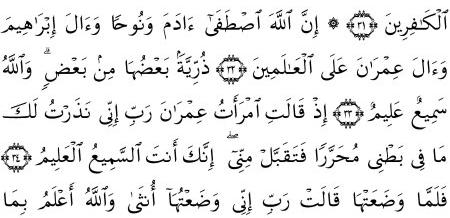 ٱلْكَـٰفِرِينَ ﴿٣١﴾ ۞ إِنَّ ٱللَّهَ ٱصْطَفَىٰٓ ءَادَمَ وَنُوحًا وَءَالَ إِبْرَٰهِيمَ
وَءَالَ عِمْرَٰنَ عَلَى ٱلْعَـٰلَمِينَ ﴿٣٢﴾ ذُرِّيَّةًۢ بَعْضُهَا مِنۢ بَعْضٍ ۗ وَٱللَّهُ
سَمِيعٌ عَلِيمٌ ﴿٣٣﴾ إِذْ قَالَتِ ٱمْرَأَتُ عِمْرَٰنَ رَبِّ إِنِّى نَذَرْتُ لَكَ
مَا فِى بَطْنِى مُحَرَّرًا فَتَقَبَّلْ مِنِّىٓ ۖ إِنَّكَ أَنتَ ٱلسَّمِيعُ ٱلْعَلِيمُ ﴿٣٤﴾
فَلَمَّا وَضَعَتْهَا قَالَتْ رَبِّ إِنِّى وَضَعْتُهَآ أُنثَىٰ وَٱللَّهُ أَعْلَمُ بِمَا